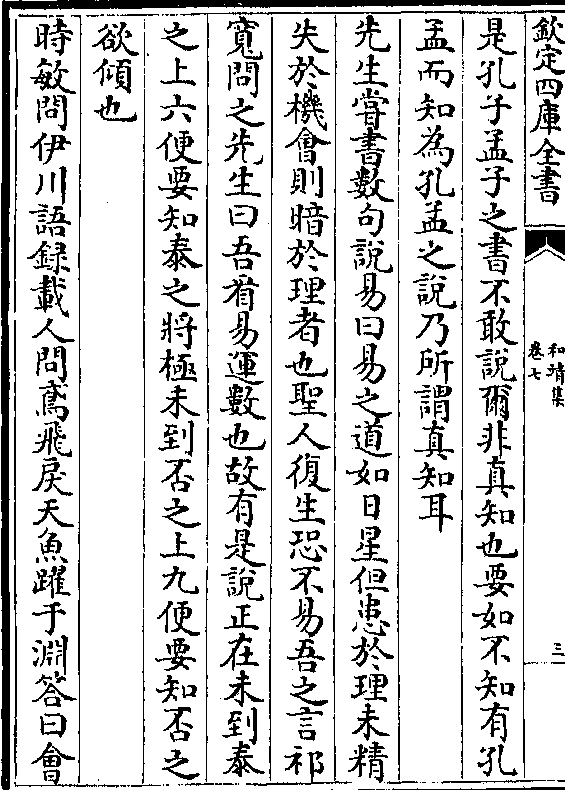 欽定四庫全書
和靖集
卷七
三
是孔子孟子之書不敢說爾非真知也要如不知有孔
孟而知為孔孟之說乃所謂真知耳
先生嘗書數句說易曰易之道如日星但患於理未精
失於機會則暗於理者也聖人復生恐不易吾之言祁
寬問之先生曰吾省易運數也故有是說正在未到泰
之上六便要知泰之將極未到否之上九便要知否之
欲傾也
時敏問伊川語録載人問鳶飛戾天魚躍于淵答曰會